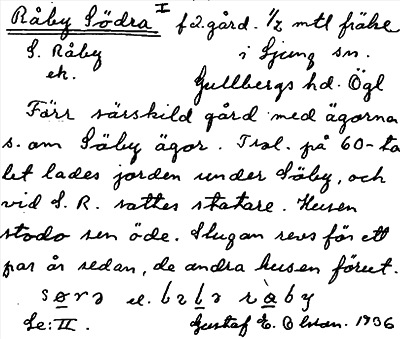 Råby Södra I f.2.gård. 1/2 mtl frälse
S. Råby i Ljung sn.
ek. Gullbergs hd. Ögl
Förr särskild gård med ägorna
s. om Säby ägor. Trol. på 60-ta
let lades jorden under Säby, och
vid S. R. sattes statare. Husen
stodo sen öde. Stugan revs för ett
par år sedan, de andra husen förut.
Le: II. Gustaf E. Olsson. 1936